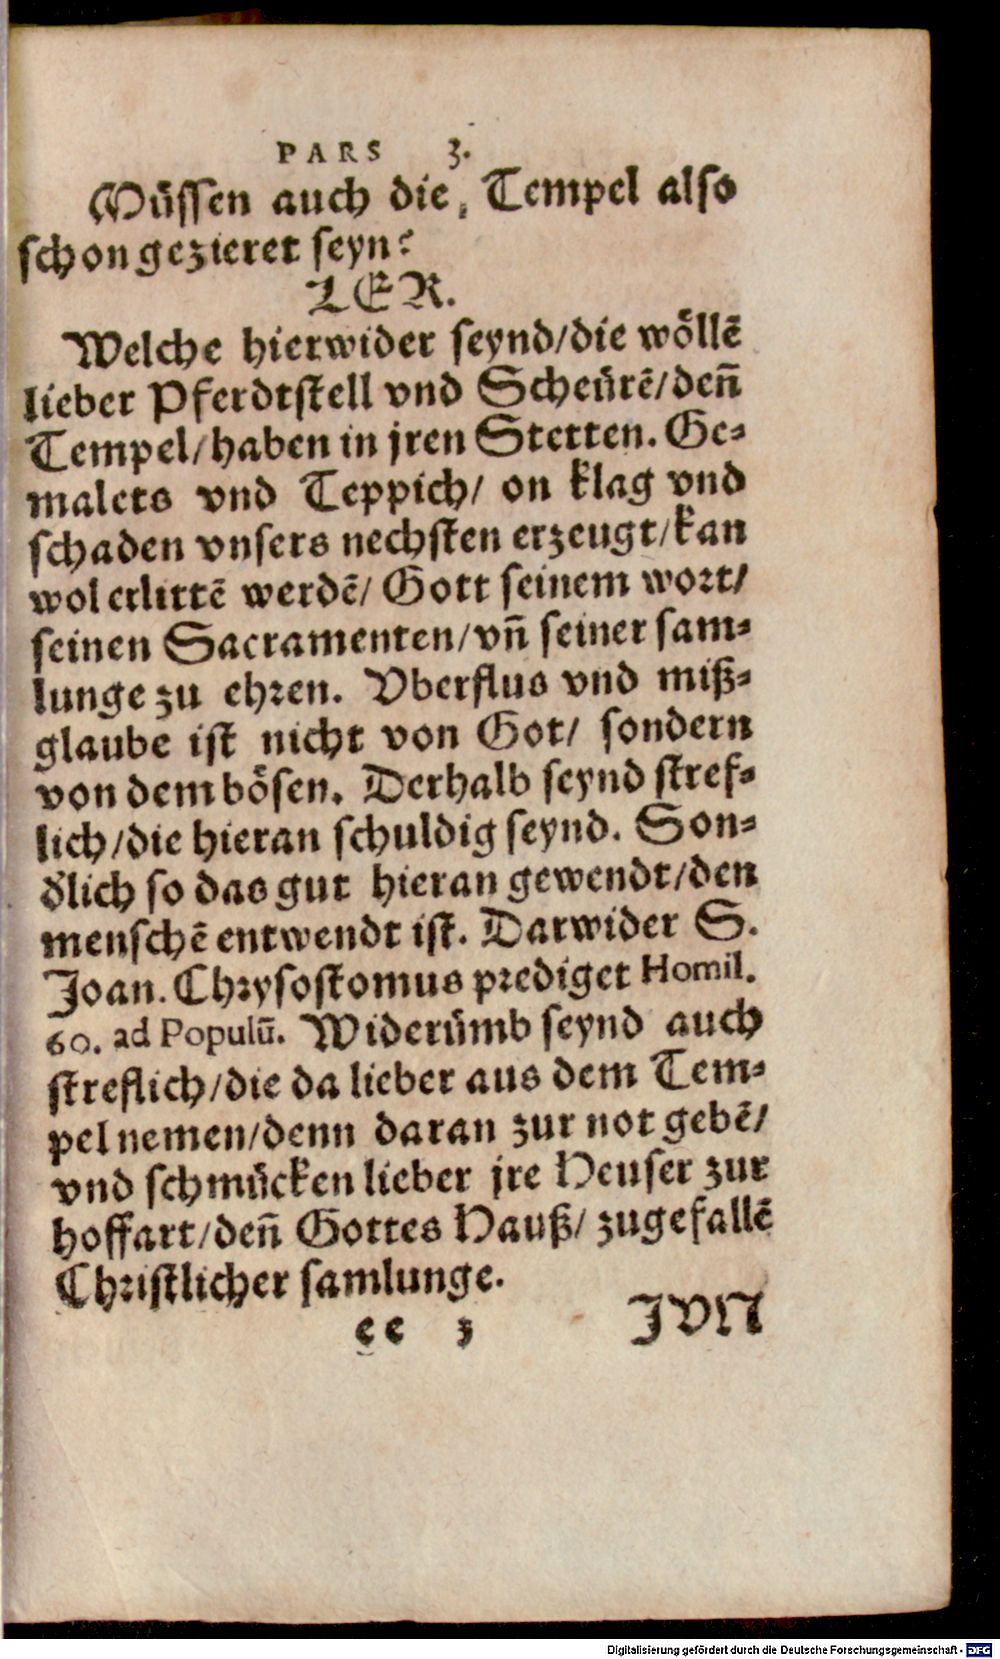 PARS 3.
Müssen auch die, Tempel also
schon gezieret seyn?
LER.
Welche hierwider seynd/die wöllẽ
lieber Pferdtstell vnd Scheürẽ/deñ
Tempel/haben in jren Stetten. Ge⸗
malets vnd Teppich/ on klag vnd
schaden vnsers nechsten erzeugt/kan
wol erlittẽ werdẽ/ Gott seinem wort/
seinen Sacramenten/vñ seiner sam⸗
lunge zu ehren. Vberflus vnd miß⸗
glaube ist nicht von Got/ sondern
von dem bösen. Derhalb seynd stref⸗
lich/die hieran schuldig seynd. Son⸗
d̕lich so das gut hieran gewendt/den
menschẽ entwendt ist. Darwider S.
Joan. Chrysostomus prediget Homil.
60. ad Populũ. Widerümb seynd auch
streflich/die da lieber aus dem Tem⸗
pel nemen/denn daran zur not gebẽ/
vnd schmücken lieber jre Heuser zur
hoffart/deñ Gottes Hauß/ zugefallẽ
Christlicher samlunge.
ee 3 JVN
Digitalisierung gefördert durch die Deutsche Forschungsgemeinschaft - DFG